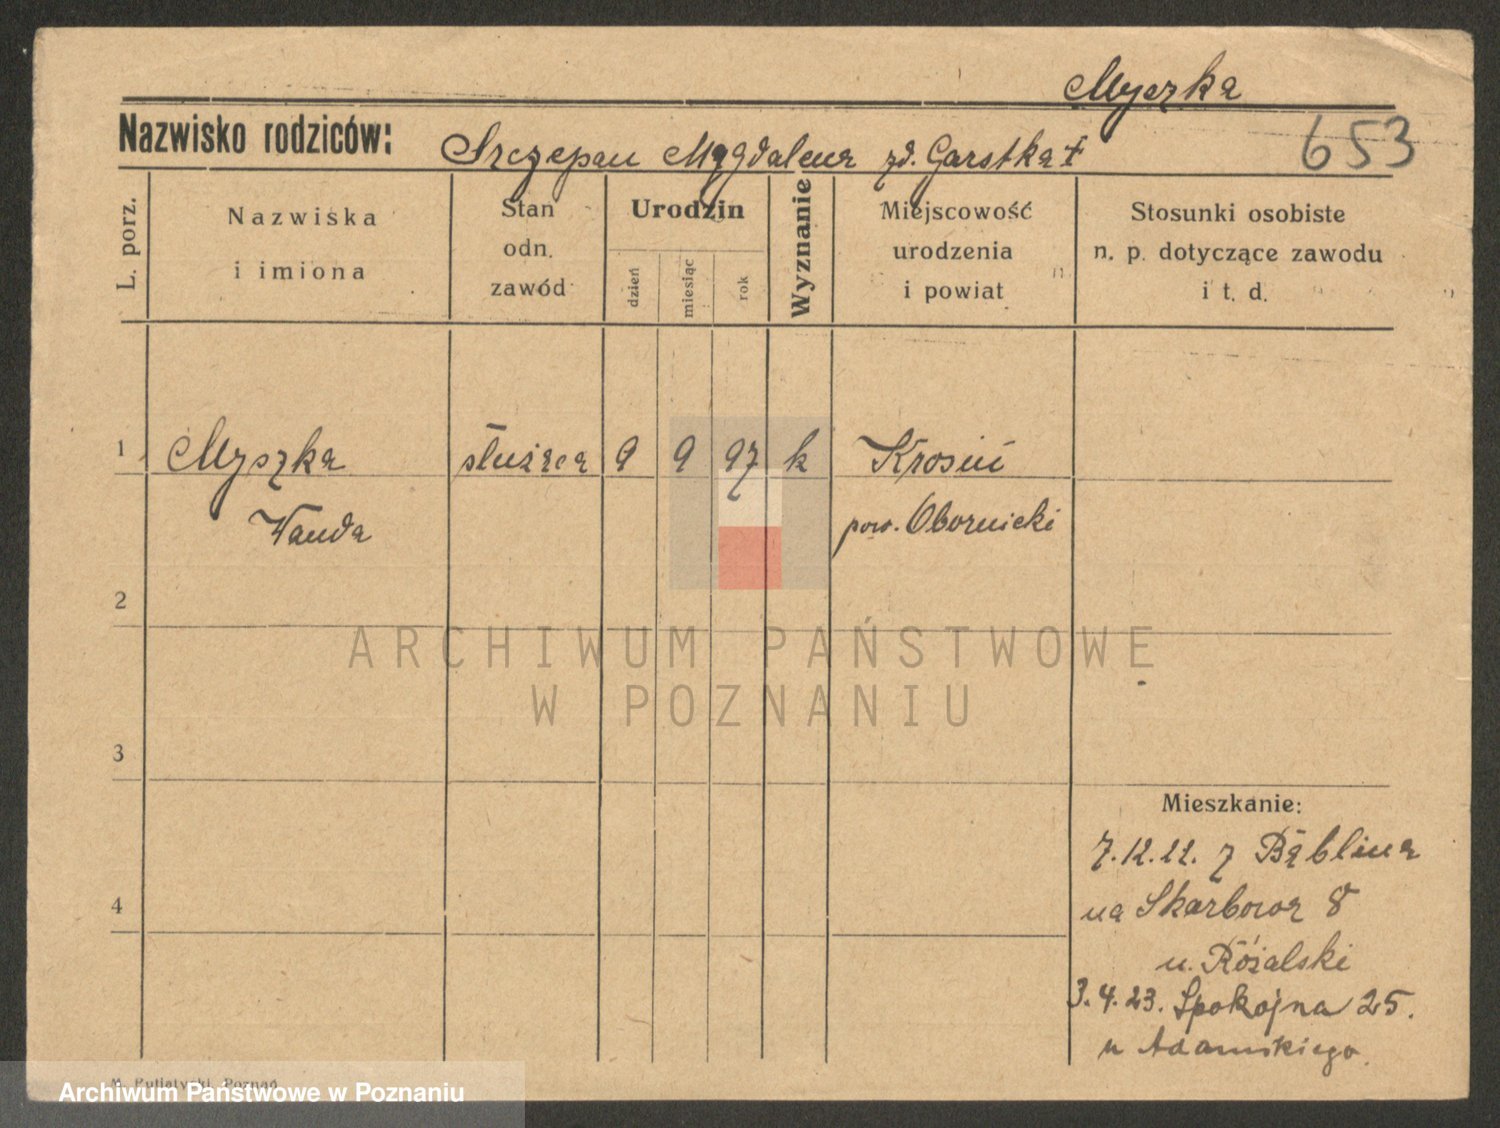 Myszka
Nazwisko rodziców: Szczepan Magdalena zd. Garstka +
653
L. porz.
Nazwiska
i imiona
Stan
odn.
zawód
Urodzin
dzień
miesiąc
rok
Wyznanie
Miejscowość
urodzenia
i powiat
Stosunki osobiste
n. p. dotyczące zawodu
i t. d.
1 Myszka służąca 9 9 97 k Krosin
Wanda pow. Obornicki
2
ARCHIWUM PAŃSTWOWE
W POZNANIU
3
Mieszkanie:
7.12.22. z Bąblina
4
na Skarbowa 8
u. Różalski
3.4.23. Spokojna 25.
u Adamskiego
M. Putiatycki, Poznań
Archiwum Państwowe w Poznaniu